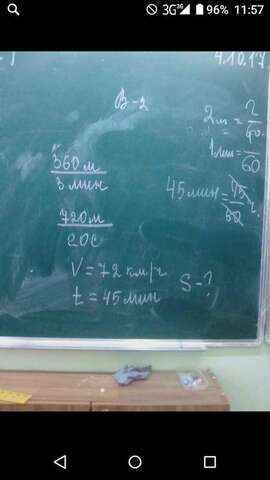 3G 96% 11:57
4.10.17
В-2
360 м
3 мин
720 м
20 с
V = 72 км/ч
t = 45 мин
S - ?
1 мин =
60
45 мин = 45
60